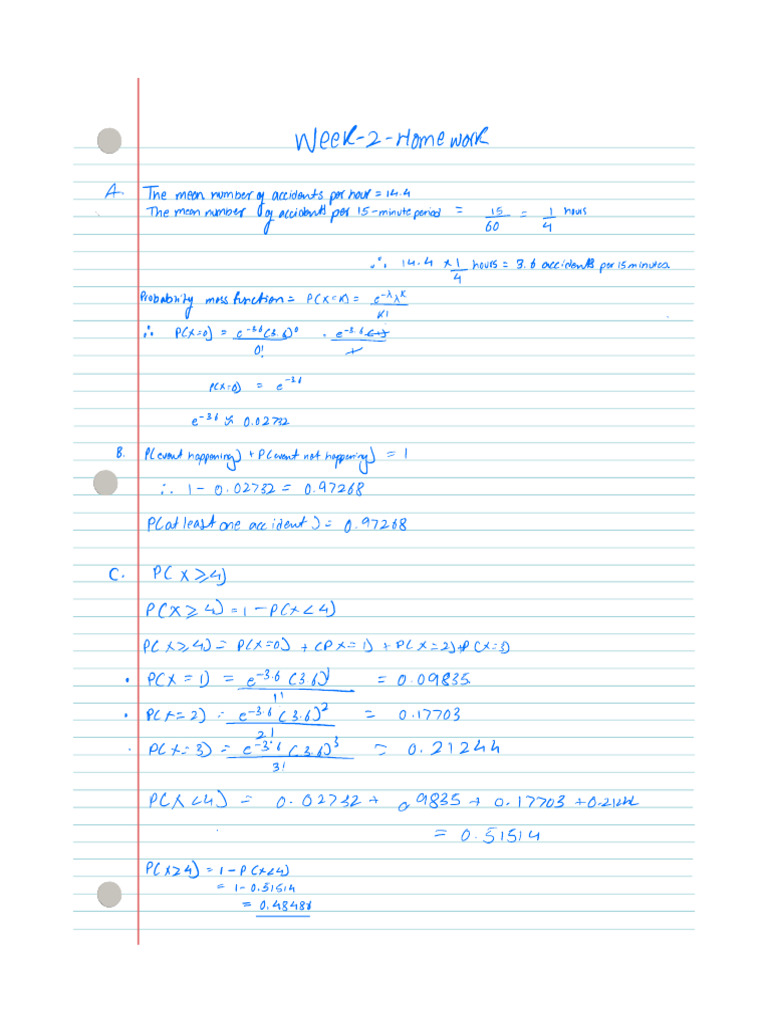 Week-2-Homework
A. The mean number of accidents per hour = 14.4
The mean number of accidents per 15-minute period = 15/60 = 1/4 hours
∴ 14.4 × 1/4 hours = 3.6 accidents per 15 minutes.
Probability mass function = P(X=K) = e^-λ λ^K / K!
∴ P(X=0) = e^-3.6 (3.6)^0 / 0!
P(X=0) = e^-3.6
e^-3.6 ≈ 0.02732
B. P(event happening) + P(event not happening) = 1
∴ 1 - 0.02732 = 0.97268
P(at least one accident) = 0.97268
C. P(X≥4)
P(X≥4) = 1 - P(X<4)
P(X≥4) = P(X=0) + (PX=1) + P(X=2) + P(X=3)
• P(X=1) = e^-3.6 (3.6)^1 / 1! = 0.09835
• P(X=2) = e^-3.6 (3.6)^2 / 2! = 0.17703
• P(X=3) = e^-3.6 (3.6)^3 / 3! = 0.21244
P(X<4) = 0.02732 + 0.9835 + 0.17703 + 0.21244
= 0.51514
P(X≥4) = 1 - P(X<4)
= 1 - 0.51514
= 0.48486